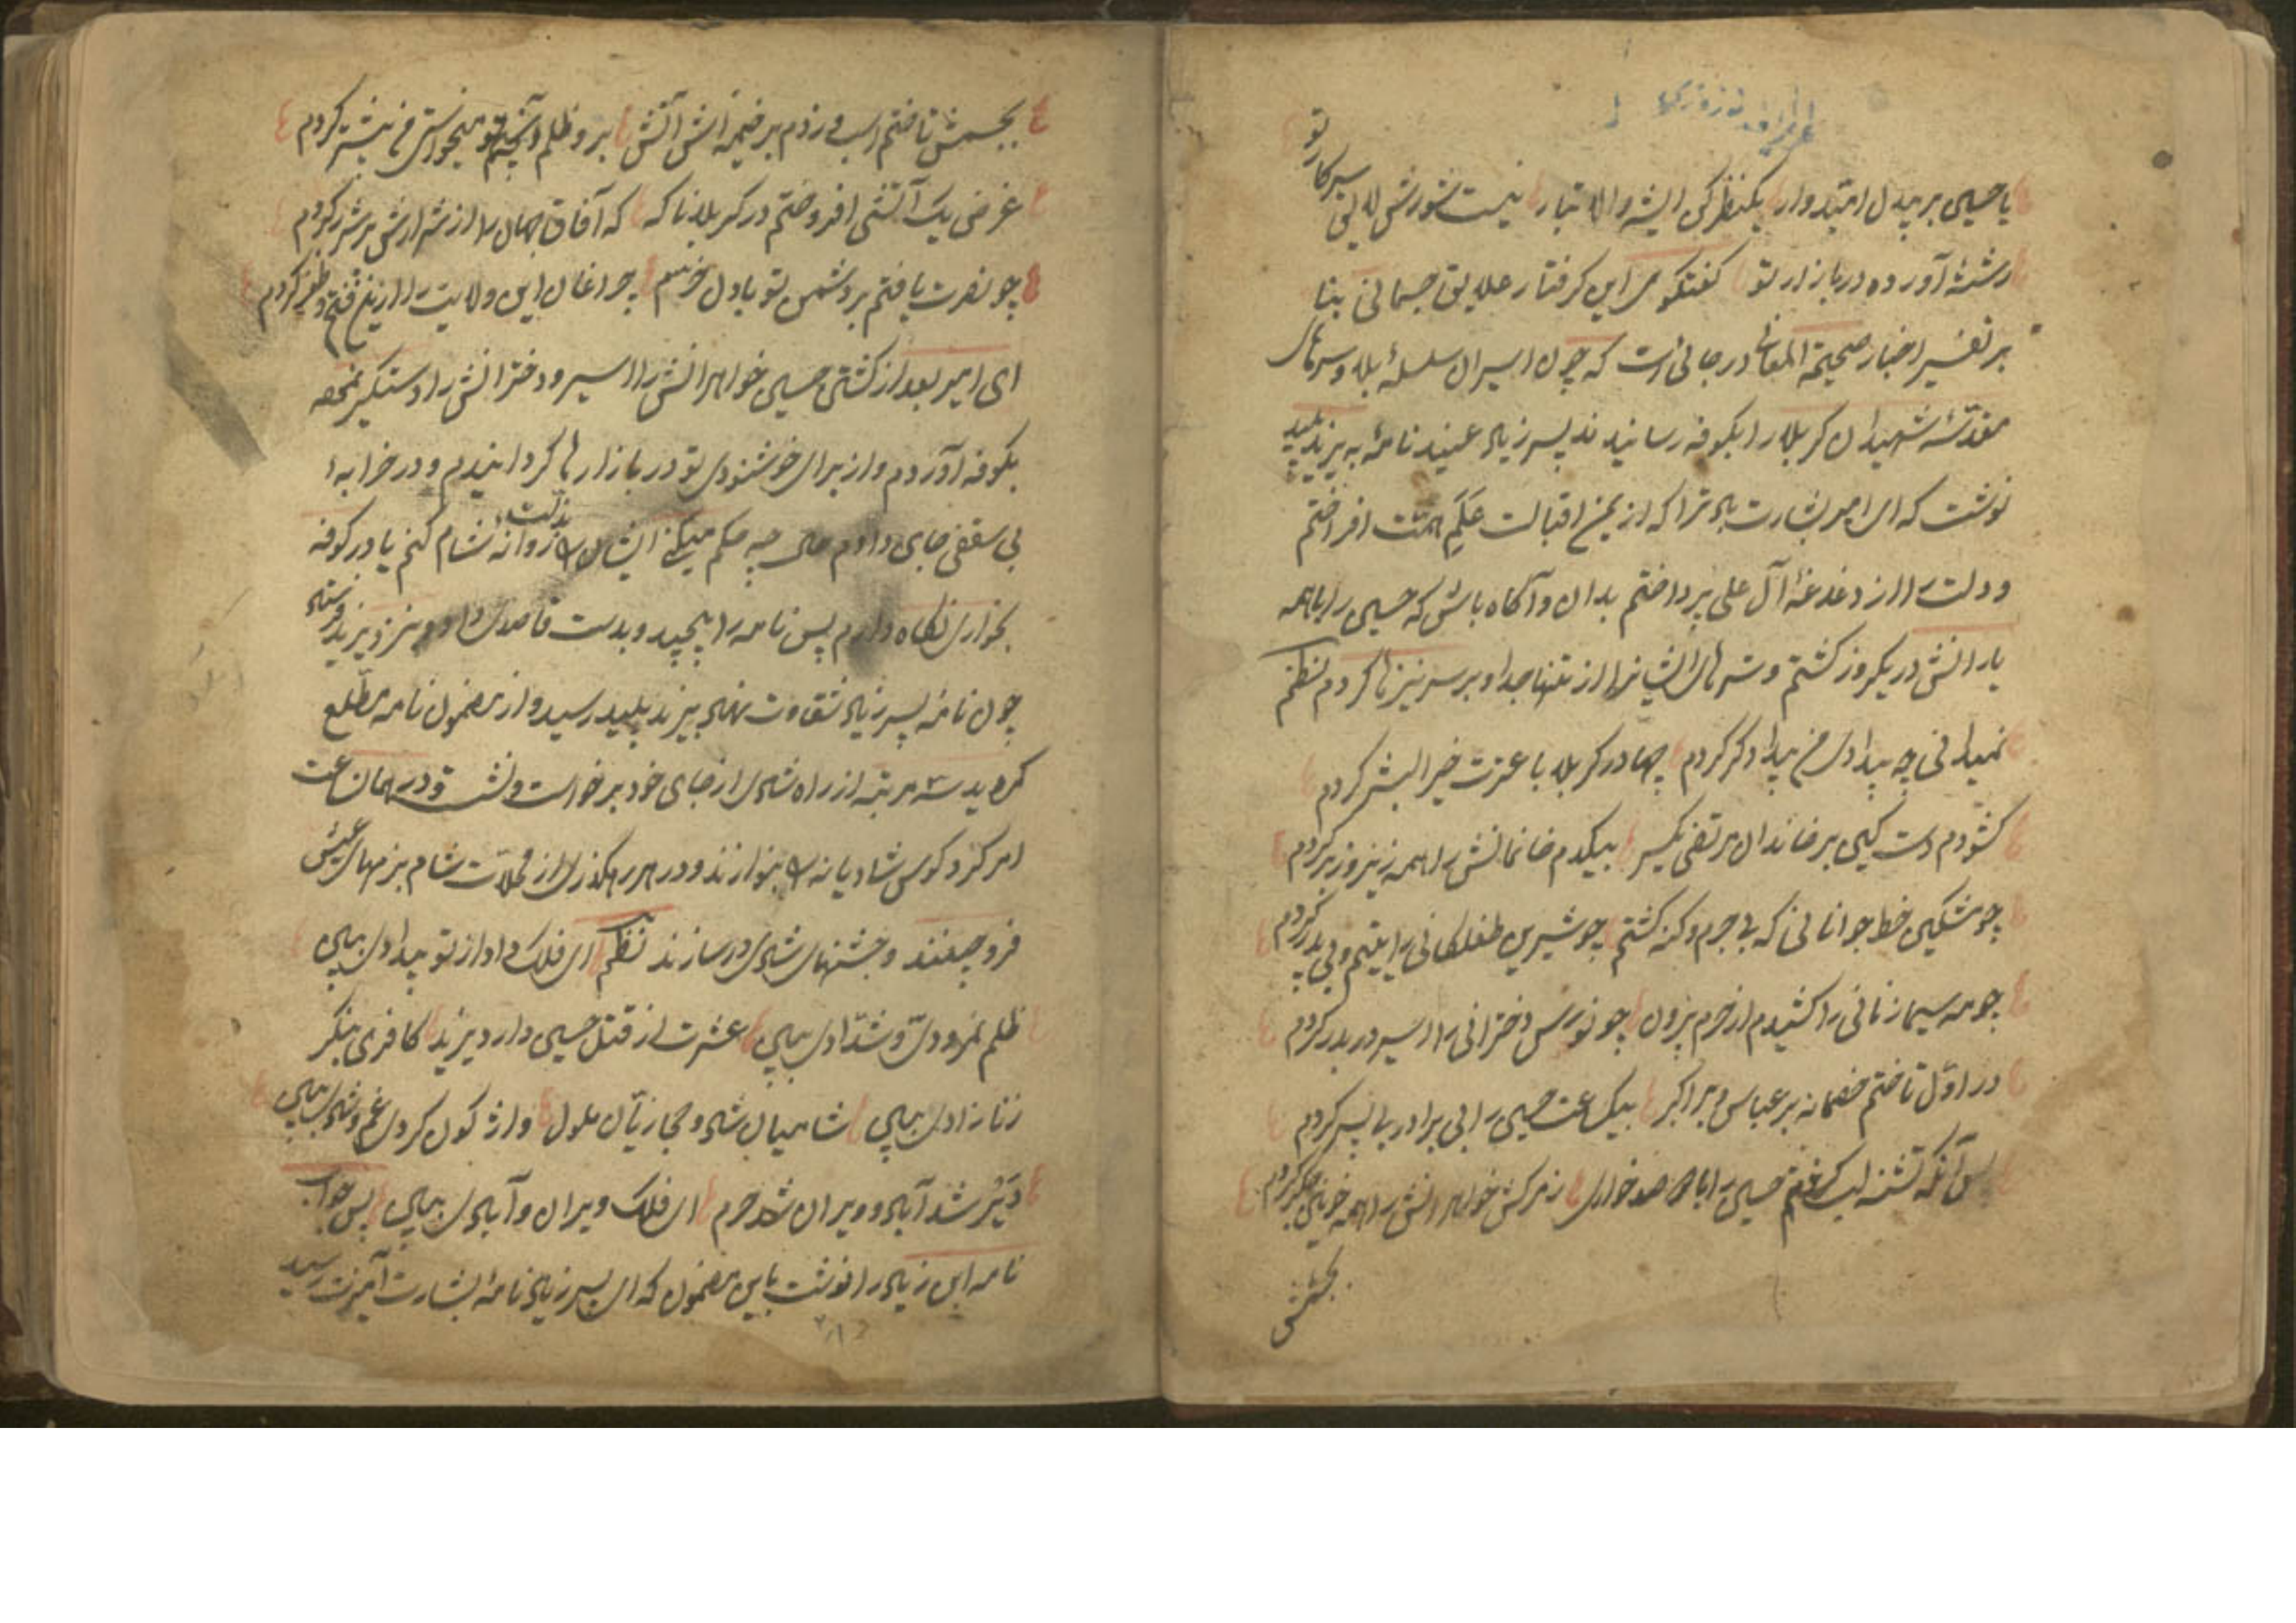 یا حسین بر بیدل امیدوار یکنظر کن ای شه والا تبار نیست شورش لایق سرکار تو
رشتهٔ آورده در بازار تو گفتگوی این گرفتار علایق جسمانی بنا
بر تفسیر اخبار صحیحة المعانی در جائی است که چون اسیران سلسلهٔ بلا و سرهای
مقدسهٔ شهیدان کربلا را بکوفه رسانیدند پسر زیاد عنید نامهٔ به یزید پلید
نوشت که ای امیر بشارت باد ترا که از یمن اقبالت علم همت افراختم
و دلت را از دغدغهٔ آل علی پرداختم بدان و آگاه باش که حسین را با همه
یارانش در یکروز کشتم و سرهای ایشانرا از تنها جدا و بر سر نیزها کردم نظم
نمیدانی چه بیدادی من بیدادگر کردم چها در کربلا با عترت خیر البشر کردم
گشودم دست کین بر خاندان مرتضی یکسر بیکدم خانمانش را همه زیر و زبر کردم
چو مشکین خط جوانانی که بی جرم و گنه کشتم چو شیرین طفلکانی را یتیم و بی پدر کردم
چو مه سیما زنانی را کشیدم از حرم بیرون چو نورس دخترانی را اسیر و دربدر کردم
در اول تاختم خصمانه بر عباس و بر اکبر بیک ساعت حسین را بی برادر بی پسر کردم
پس آنگه تشنه لب کشتم حسین را با صد خواری ز مرگش خواهرانش را همه خونین جگر کردم
بجسمش
بجسمش تاختم اسب و زدم بر خیمه‌اش آتش برو ظلم آنچه تو میخواستی من بیشتر کردم
غرض یک آتشی افروختم در کربلا ناگه که آفاق جهان را از شرارش پر شرر کردم
چو نصرت یافتم بر دشمن تو با دل خرم چراغان این ولایت را از تیغ فتح و ظفر کردم
ای امیر بعد از کشتن حسین خواهرانش را اسیر و دخترانش را دستگیر نموده
بکوفه آوردم و از برای خوشنودی تو در بازارها گردانیدم و در خرابهٔ
بی سقفی جای دادم حال چه حکم میکنی ایشان را بذلت روانه شام کنم یا در کوفه
بخواری نگاه دارم پس نامه را پیچید و بدست قاصدی داد و بنزد یزید فرستاد
چون نامهٔ پسر زیاد شقاوت نهاد بیزید پلید رسید و از مضمون نامه مطلع
گردید سه مرتبه از راه شادی از جای خود برخواست و نشست و در همان ساعت
امر کرد کوس شادیانه را بنوازند و در هر رهگذری از محلات شام بزمهای عیش
فرو چینند و جشنهای شادی در سازند نظم ای فلک داد از تو بیدادی ببین
ظلم نمرودی و شدادی ببین عشرت از قتل حسین دارد یزید کافری بنگر
زنازادی ببین شامیان شاد و حجازیان ملول واژگون گردون غم و شادی ببین
دیر شد آباد و ویران شد حرم ای فلک ویران و آبادی ببین پس جواب
نامه ابن زیاد را نوشت باین مضمون که ای پسر زیاد نامهٔ بشارت آمیزت رسید